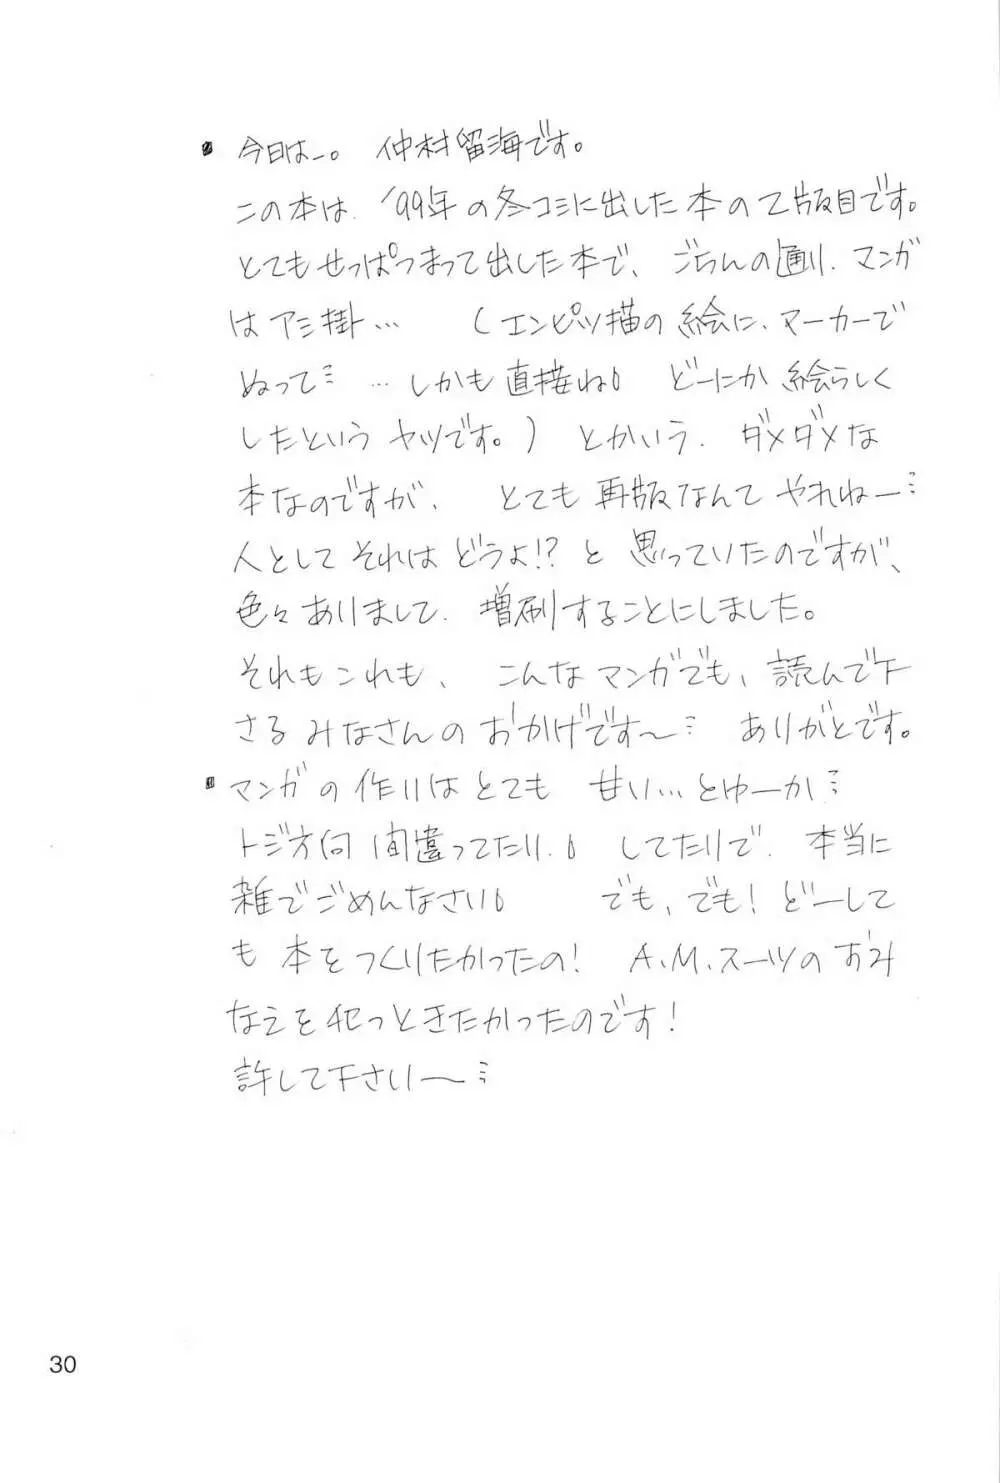 ・今日はー。 仲村留海です。
この本は、'99年の冬コミに出した本の2版目です。
とてもせっぱつまって出した本で、ごらんの通り、マンガ
はアミ掛… (エンピツ描の絵に、マーカーで
ぬって… …しかも直接ね。 どーにか絵らしく
したというヤツです。) とかいう、ダメダメな
本なのですが、 とても再版なんてやれねー…
人としてそれはどうよ!?と思っていたのですが、
色々ありまして、増刷することにしました。
それもこれも、 こんなマンガでも、読んで下
さるみなさんのおかげです〜… ありがとです。
・マンガの作りはとても 甘い…とゆーか…
トジ方向間違ってたり、してたりで、本当に
雑でごめんなさい。 でも、でも!どーして
も本をつくりたかったの! A.M.スーツのおみ
なえを犯っときたかったのです!
許して下さい〜…
30